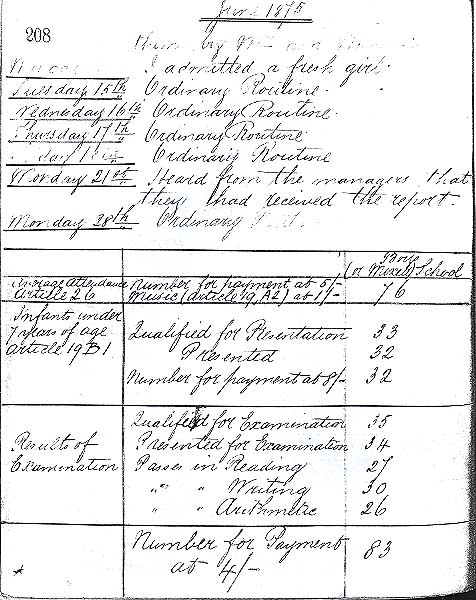 June 1875
208
I admitted a fresh girl.
Tuesday 15th Ordinary Routine.
Wednesday 16th Ordinary Routine.
Thursday 17th Ordinary Routine
Ordinary Routine
Monday 21st Heard from the managers that
they had received the report.
Monday 28th Ordinary
Boys
(or Mixed) School
Average Attendance Number for payment at 5/-
Article 26 Music (article 19, A2) at 1/- 76
Infants under
7 years of age Qualified for Presentation 33
article 19 B1 Presented 32
Number for payment at 8/- 32
Qualified for Examination 35
Results of Presented for Examination 34
Examination Passes in Reading 27
" " Writing 30
" " Arithmetic 26
Number for Payment 83
at 4/-